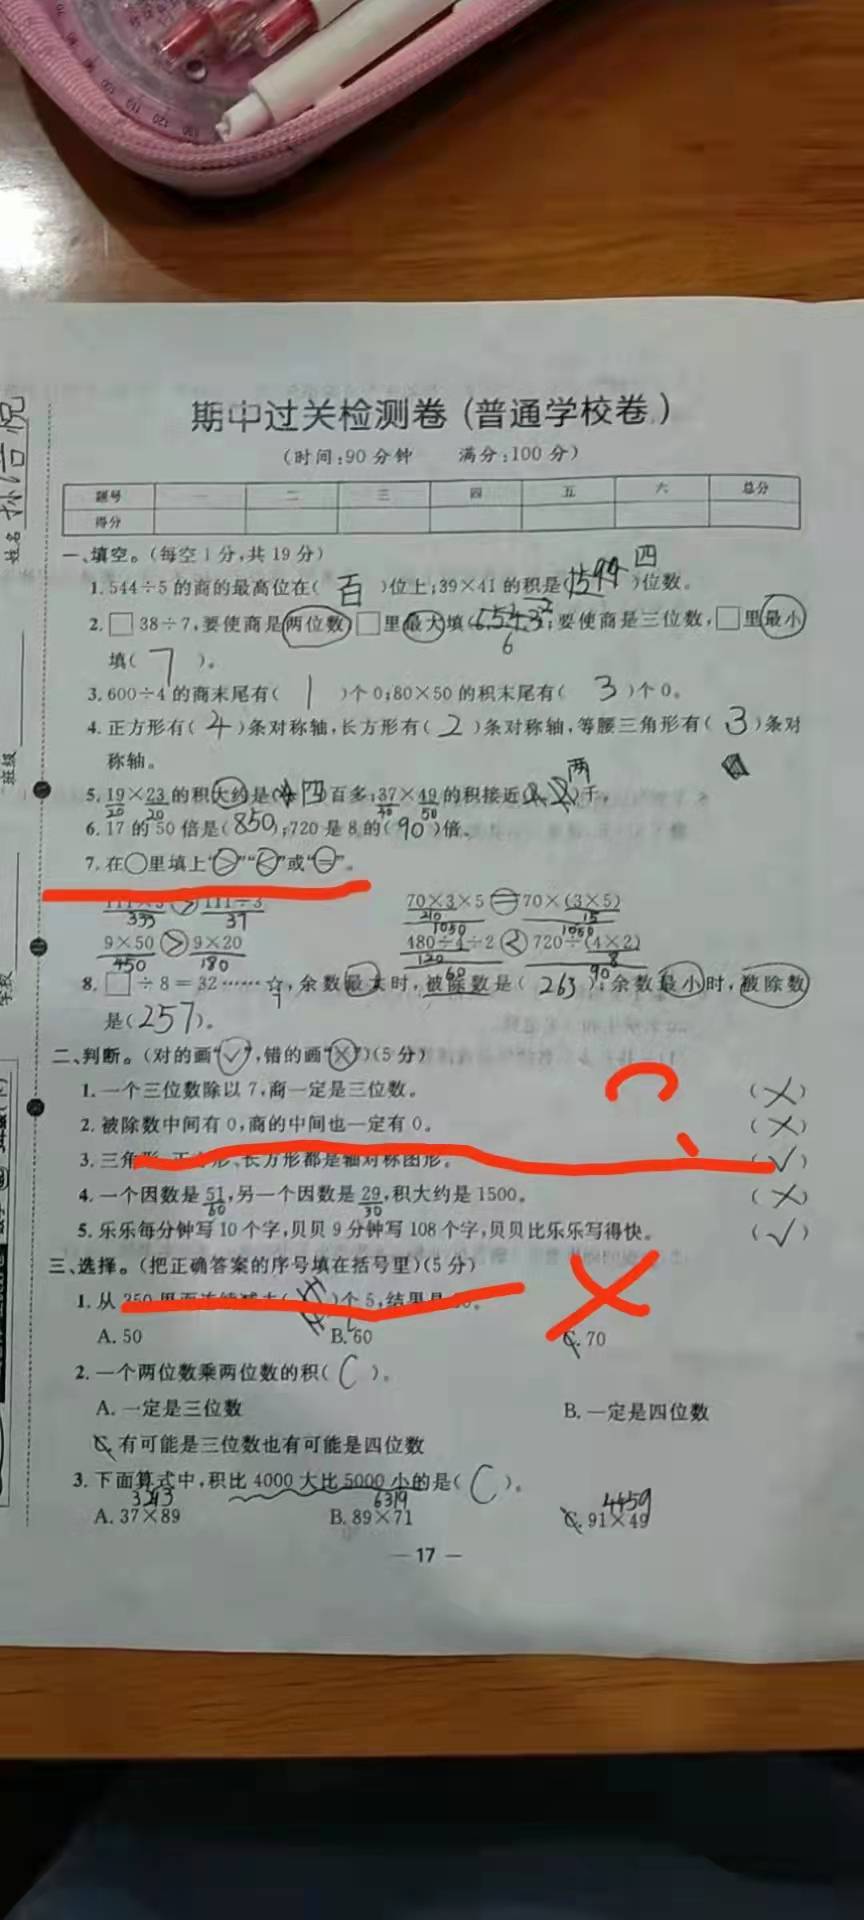 期中过关检测卷(普通学校卷)
(时间:90分钟 满分:100分)
题号 一 二 三 四 五 六 总分
得分
姓名
班级
学校
一、填空。(每空1分,共19分)
1.544÷5的商的最高位在(百)位上;39×41的积是(四)位数。
2.□38÷7,要使商是两位数,□里最大填(6);要使商是三位数,□里最小
填(7)。
3.600÷4的商末尾有(1)个0;80×50的积末尾有(3)个0。
4.正方形有(4)条对称轴,长方形有(2)条对称轴,等腰三角形有(3)条对
称轴。
5.19×23的积大约是(四)百多;37×49的积接近(两)千。
20 20 40 50
6.17的50倍是(850);720是8的(90)倍。
7.在○里填上“>”“<”或“=”。
111×3>111÷3 70×3×5=70×(3×5)
333 37 210 1050 15 1050
9×50>9×20 480÷4÷2<720÷(4×2)
450 180 120 60 8 90
8.□÷8=32……☆,余数最大时,被除数是(263);余数最小时,被除数
是(257)。
二、判断。(对的画“√”,错的画“×”)(5分)
1.一个三位数除以7,商一定是三位数。 (×)
2.被除数中间有0,商的中间也一定有0。 (×)
3.三角形、正方形、长方形都是轴对称图形。 (√)
4.一个因数是51,另一个因数是29,积大约是1500。 (×)
60 30
5.乐乐每分钟写10个字,贝贝9分钟写108个字,贝贝比乐乐写得快。 (√)
三、选择。(把正确答案的序号填在括号里)(5分)
1.从350里面连续减去( )个5,结果是 0。
A.50 B.60 C.70
2.一个两位数乘两位数的积(C)。
A.一定是三位数 B.一定是四位数
C.有可能是三位数也有可能是四位数
3.下面算式中,积比4000大比5000小的是(C)。
3293 6319 4459
A.37×89 B.89×71 C.91×49
— 17 —